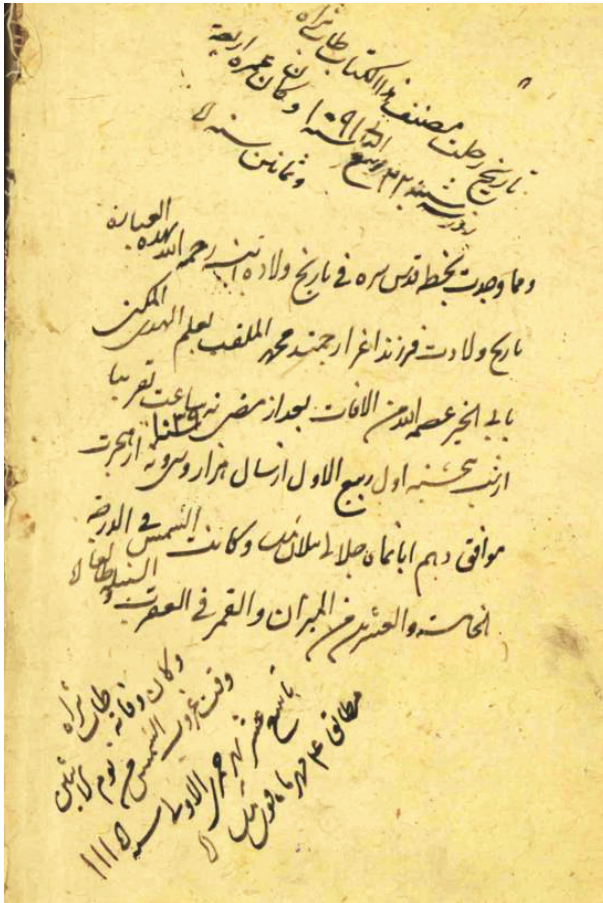 تاریخ رحلت مصنف هذا الکتاب طاب ثراه
روز سه شنبه ۲۲ ربیع الثانی سنة ۱۰۹۱ و کان عمره اربعة
و ثمانین سنة
و مما وجدت بخطه قدس سره فی تاریخ ولادة ابنه رحمه الله هذه العبارة
تاریخ ولادت فرزند اعز ارجمند محمد الملقب بعلم الهدی المکنی
بابی الخیر عصمه الله من الافات بعد از مضی نه ساعت تقریبا
از شب پنجشنبه اول ربیع الاول از سال هزار و سی و نه از هجرت ۱۰۳۹
موافق دهم ابانماه جلالی و کانت الشمس فی الدرجة
الخامسة و العشرین من المیزان و القمر فی العقرب و الطالع السنبلة
و کان وفاته طاب ثراه
وقت غروب الشمس من یوم الاثنین
تاسع عشر شهر جمادی الاولی سنة ۱۱۱۵
مطابق ۴ مهر ماه